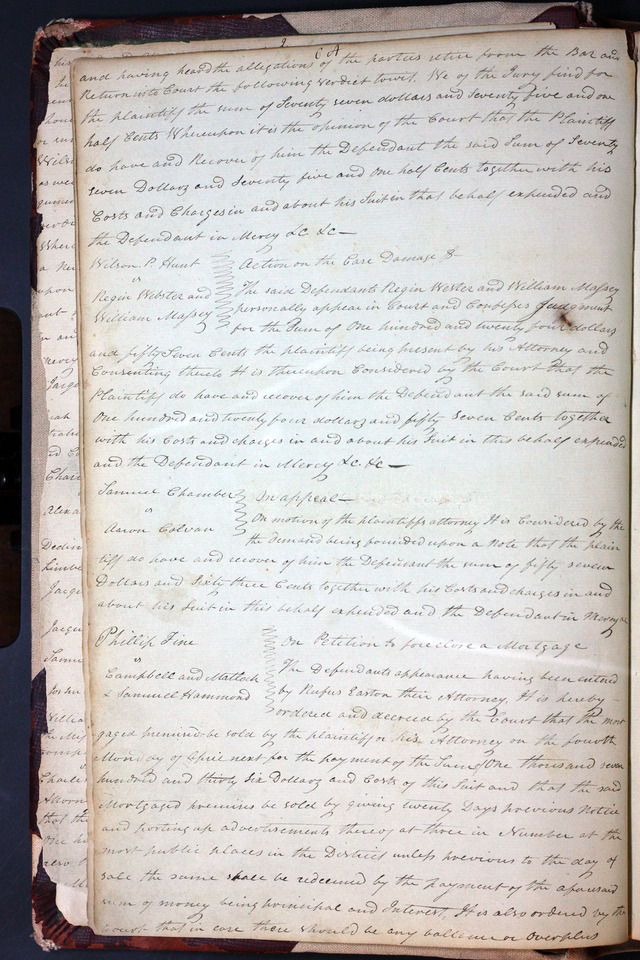 and having heard the allegations of the parties retire from the Bar and
Return into Court the following verdict towit, We of the Jury find for
the plaintiff the sum of Seventy seven dollars and Seventy five and one
half Cents Whereupon it is the opinion of the Court that the Plaintiff
do have and Recover of him the Defendant the said Sum of Seventy
seven Dollars and Seventy five and One half Cents together with his
Costs and Charges in and about his Suit in that behalf expended and
the Defendant in Mercy &c &c—
Wilson P. Hunt Action on the Case Damage $
vs
Regin Webster and The said Defendants Regin Wester and William Massey
William Massey personally appear in Court and Confesses Judgment
for the Sum of One hundred and twenty four dollars
and fifty Seven Cents the plaintiff being present by his Attorney and
Consenting thereto It is thereupon Considered by the Court that the
Plaintiff do have and recover of him the Defendant the said sum of
One hundred and twenty four dollars and fifty Seven Cents together
with his Costs and charges in and about his Suit in this behalf expended
and the Defendant in Mercy &c. &c—
Samuel Chambers In appeal—
vs On motion of the plaintiffs attorney It is Considered by the
Aaron Colvan the demand being founded upon a Note that the plain
tiff do have and recover of him the Defendant the sum of fifty seven
Dollars and Sixty three Cents together with his Costs and charges in and
about his Suit in this behalf expended and the Defendant in Mercy &c
Phillip Fine On Petition to foreclose a Mortgage
vs The Defendants appearance having been entred
Campbell and Matlock by Rufus Easton their Attorney, It is hereby
& Samuel Hammond ordered and decreed by the Court that the mort
gaged premises be sold by the plaintiff or his Attorney on the fourth
Monday of April next for the payment of the Sum of One thousand seven
hundred and thirty Six Dollars and Costs of this Suit and that the said
Mortgaged premises be sold by giving twenty Days previous notice
and posting up advertisements thereof at three in Number at the
most public places in the District unless previous to the day of
sale the same shall be redeemed by the payment of the aforesaid
sum of money being principal and Interest, It is also ordered by the
Court that in case there should be any ballance or Overplus